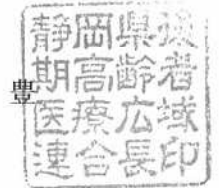 豊
静岡県後
期高齢者
医療広域
連合長印